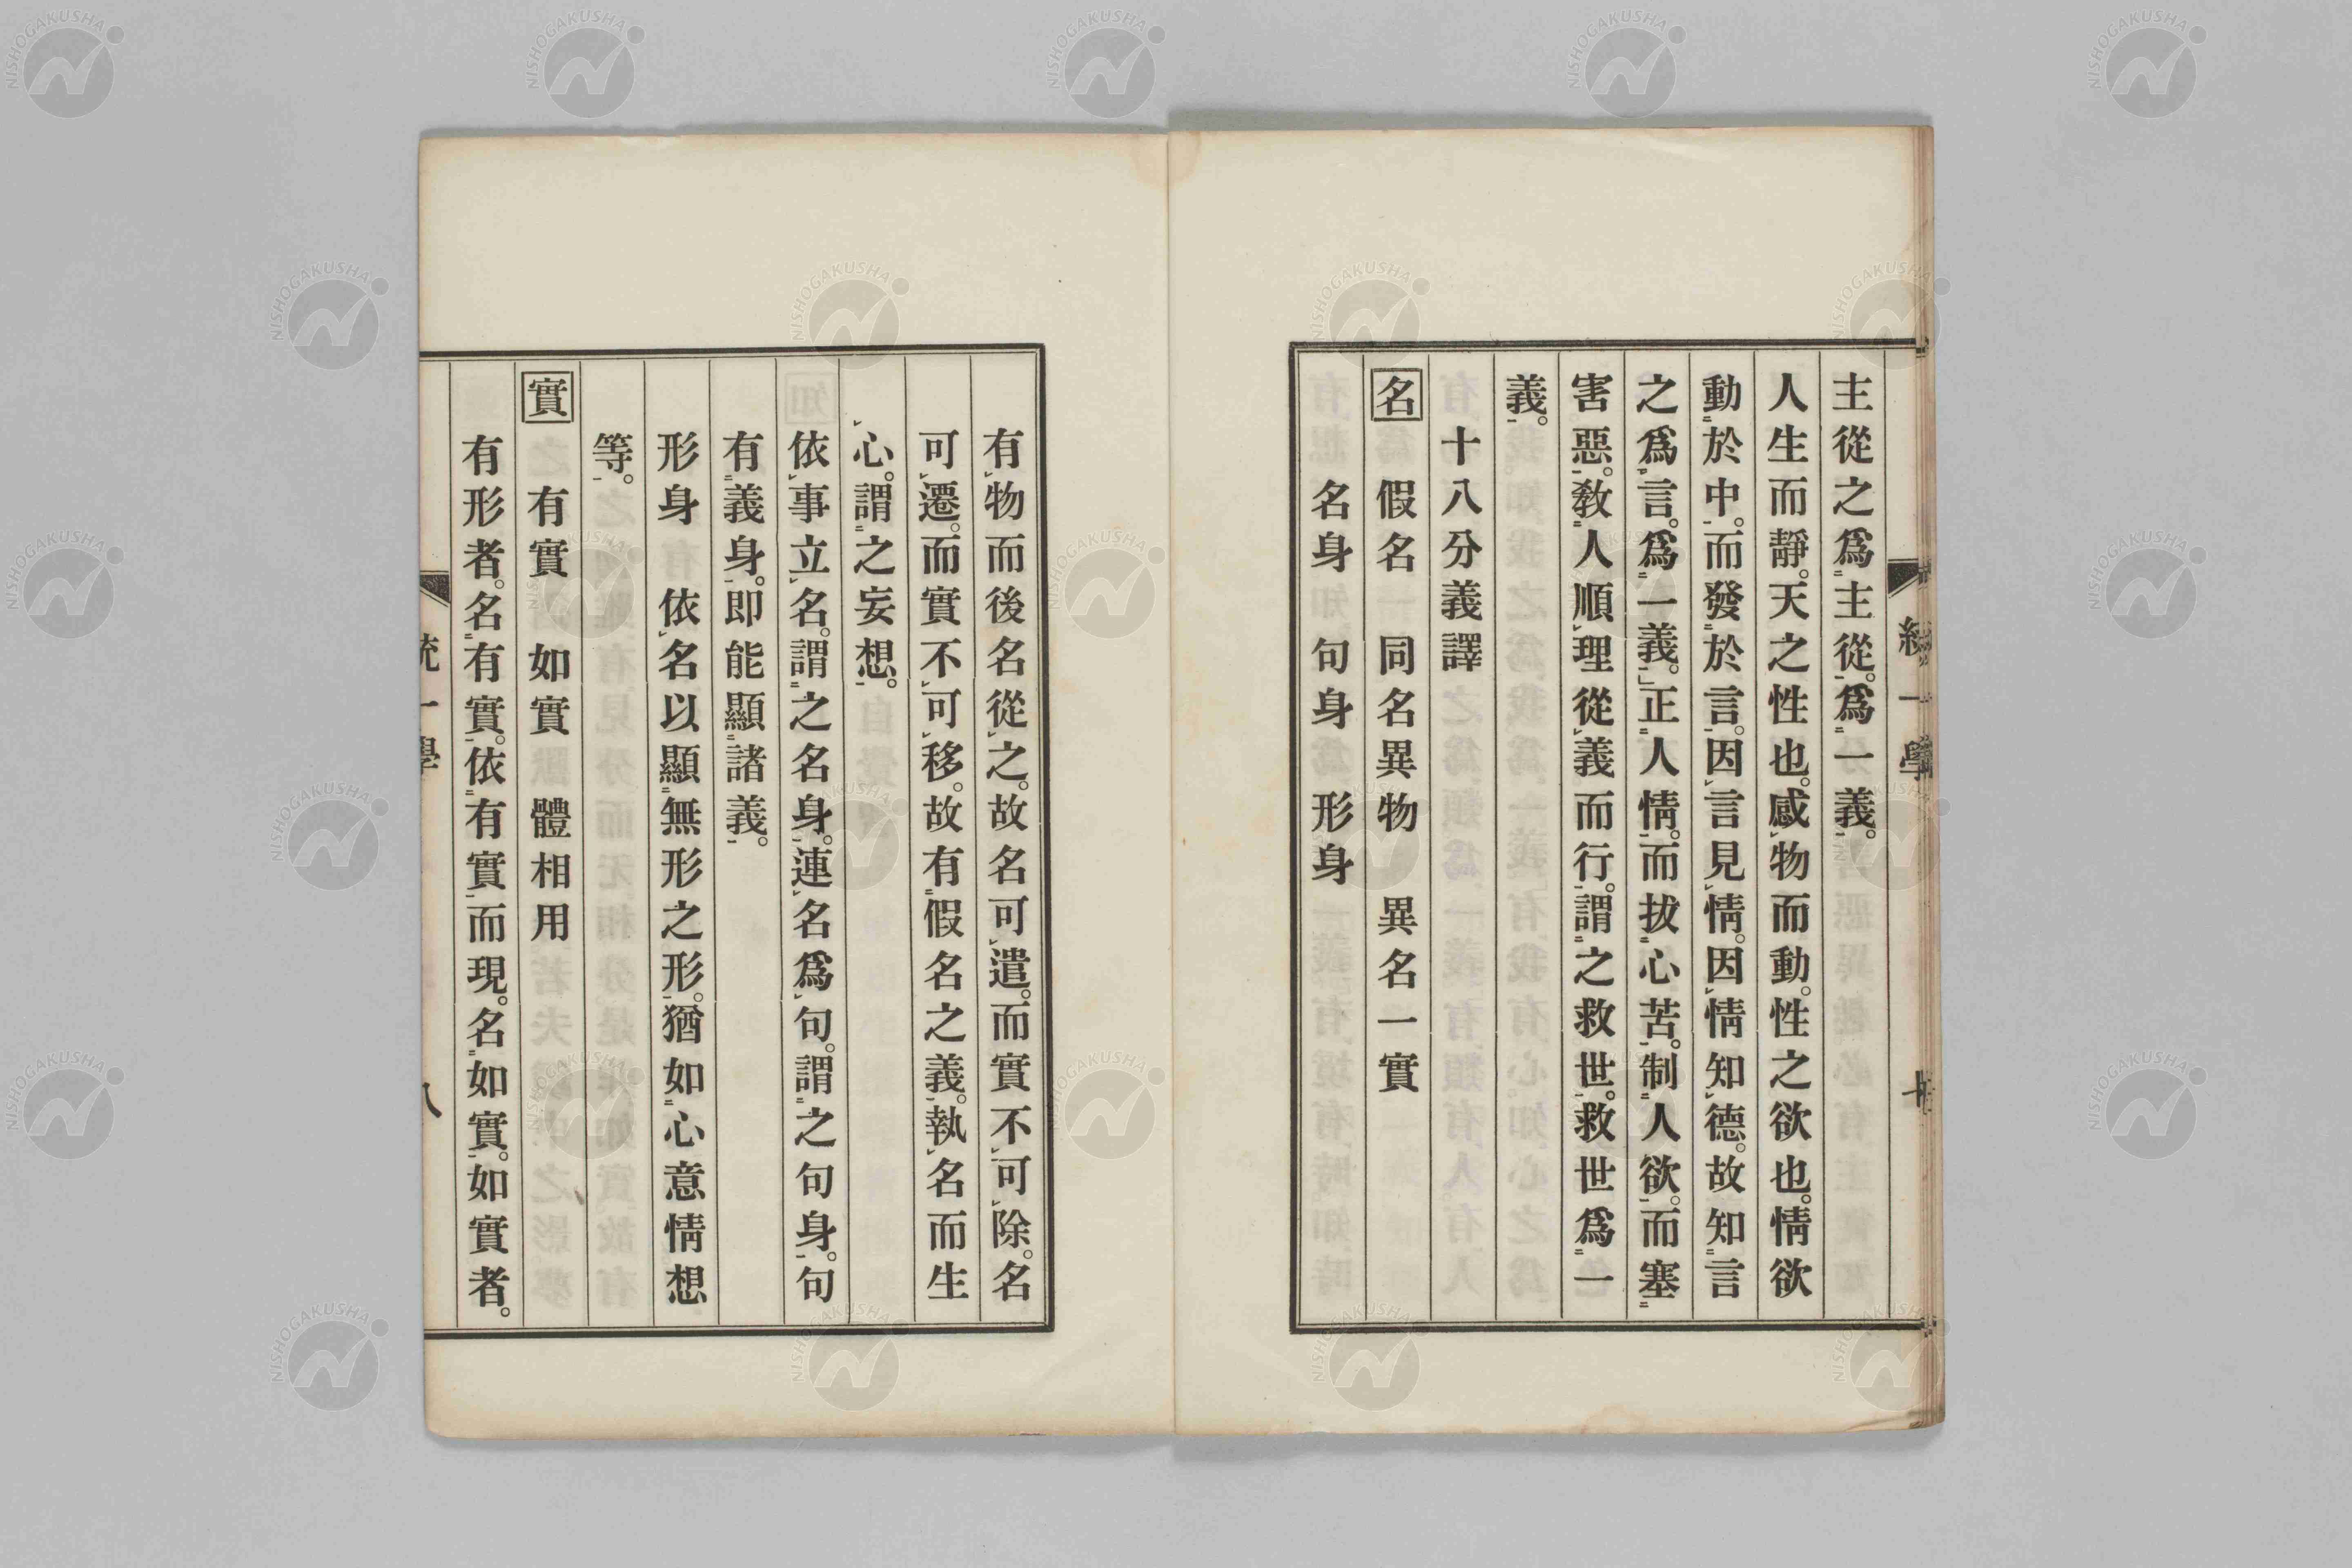 主從之爲主從。爲一義。
人生而靜。天之性也。感物而動。性之欲也。情欲
動於中。而發於言。因言見情。因情知德。故知言
之爲言。爲一義。正人情。而拔心苦。制人欲。而塞
害惡。敎人順理從義而行。謂之救世。救世爲一
義。
十八分義譯
名 假名 同名異物 異名一實
名身 句身 形身
有物而後名從之。故名可遣。而實不可除。名
可遷。而實不可移。故有假名之義。執名而生
心。謂之妄想。
依事立名。謂之名身。連名爲句。謂之句身。句
有義身。即能顯諸義。
形身 依名以顯無形之形。猶如心意情想
等。
實 有實 如實 體相用
有形者。名有實。依有實而現。名如實。如實者。
統一學
八
NISHOGAKUSHA